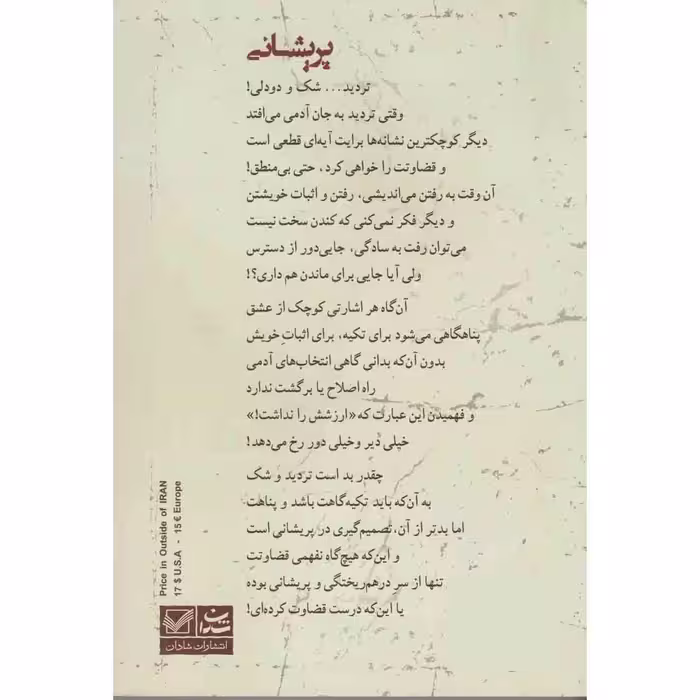 پریشانی
تردید... شک و دودلی!
وقتی تردید به جان آدمی می‌افتد
دیگر کوچکترین نشانه‌ها برایت آیه‌ای قطعی است
و قضاوتت را خواهی کرد، حتی بی‌منطق!
آن وقت به رفتن می‌اندیشی، رفتن و اثبات خویشتن
و دیگر فکر نمی‌کنی که کندن سخت نیست
می‌توان رفت به سادگی، جایی‌دور از دسترس
ولی آیا جایی برای ماندن هم داری؟!
آن‌گاه هر اشارتی کوچک از عشق
پناهگاهی می‌شود برای تکیه، برای اثباتِ خویش
بدون آن‌که بدانی گاهی انتخاب‌های آدمی
راه اصلاح یا برگشت ندارد
و فهمیدن این عبارت که «ارزشش را نداشت!»
خیلی دیر وخیلی دور رخ می‌دهد!
چقدر بد است تردید و شک
به آن‌که باید تکیه‌گاهت باشد و پناهت
اما بدتر از آن، تصمیم‌گیری در پریشانی است
و این‌که هیچ‌گاه نفهمی قضاوتت
تنها از سر درهم‌ریختگی و پریشانی بوده
یا این‌که درست قضاوت کرده‌ای!
Price in Outside of IRAN
17 $ U.S.A - 15 € Europe
شادان
انتشارات شادان